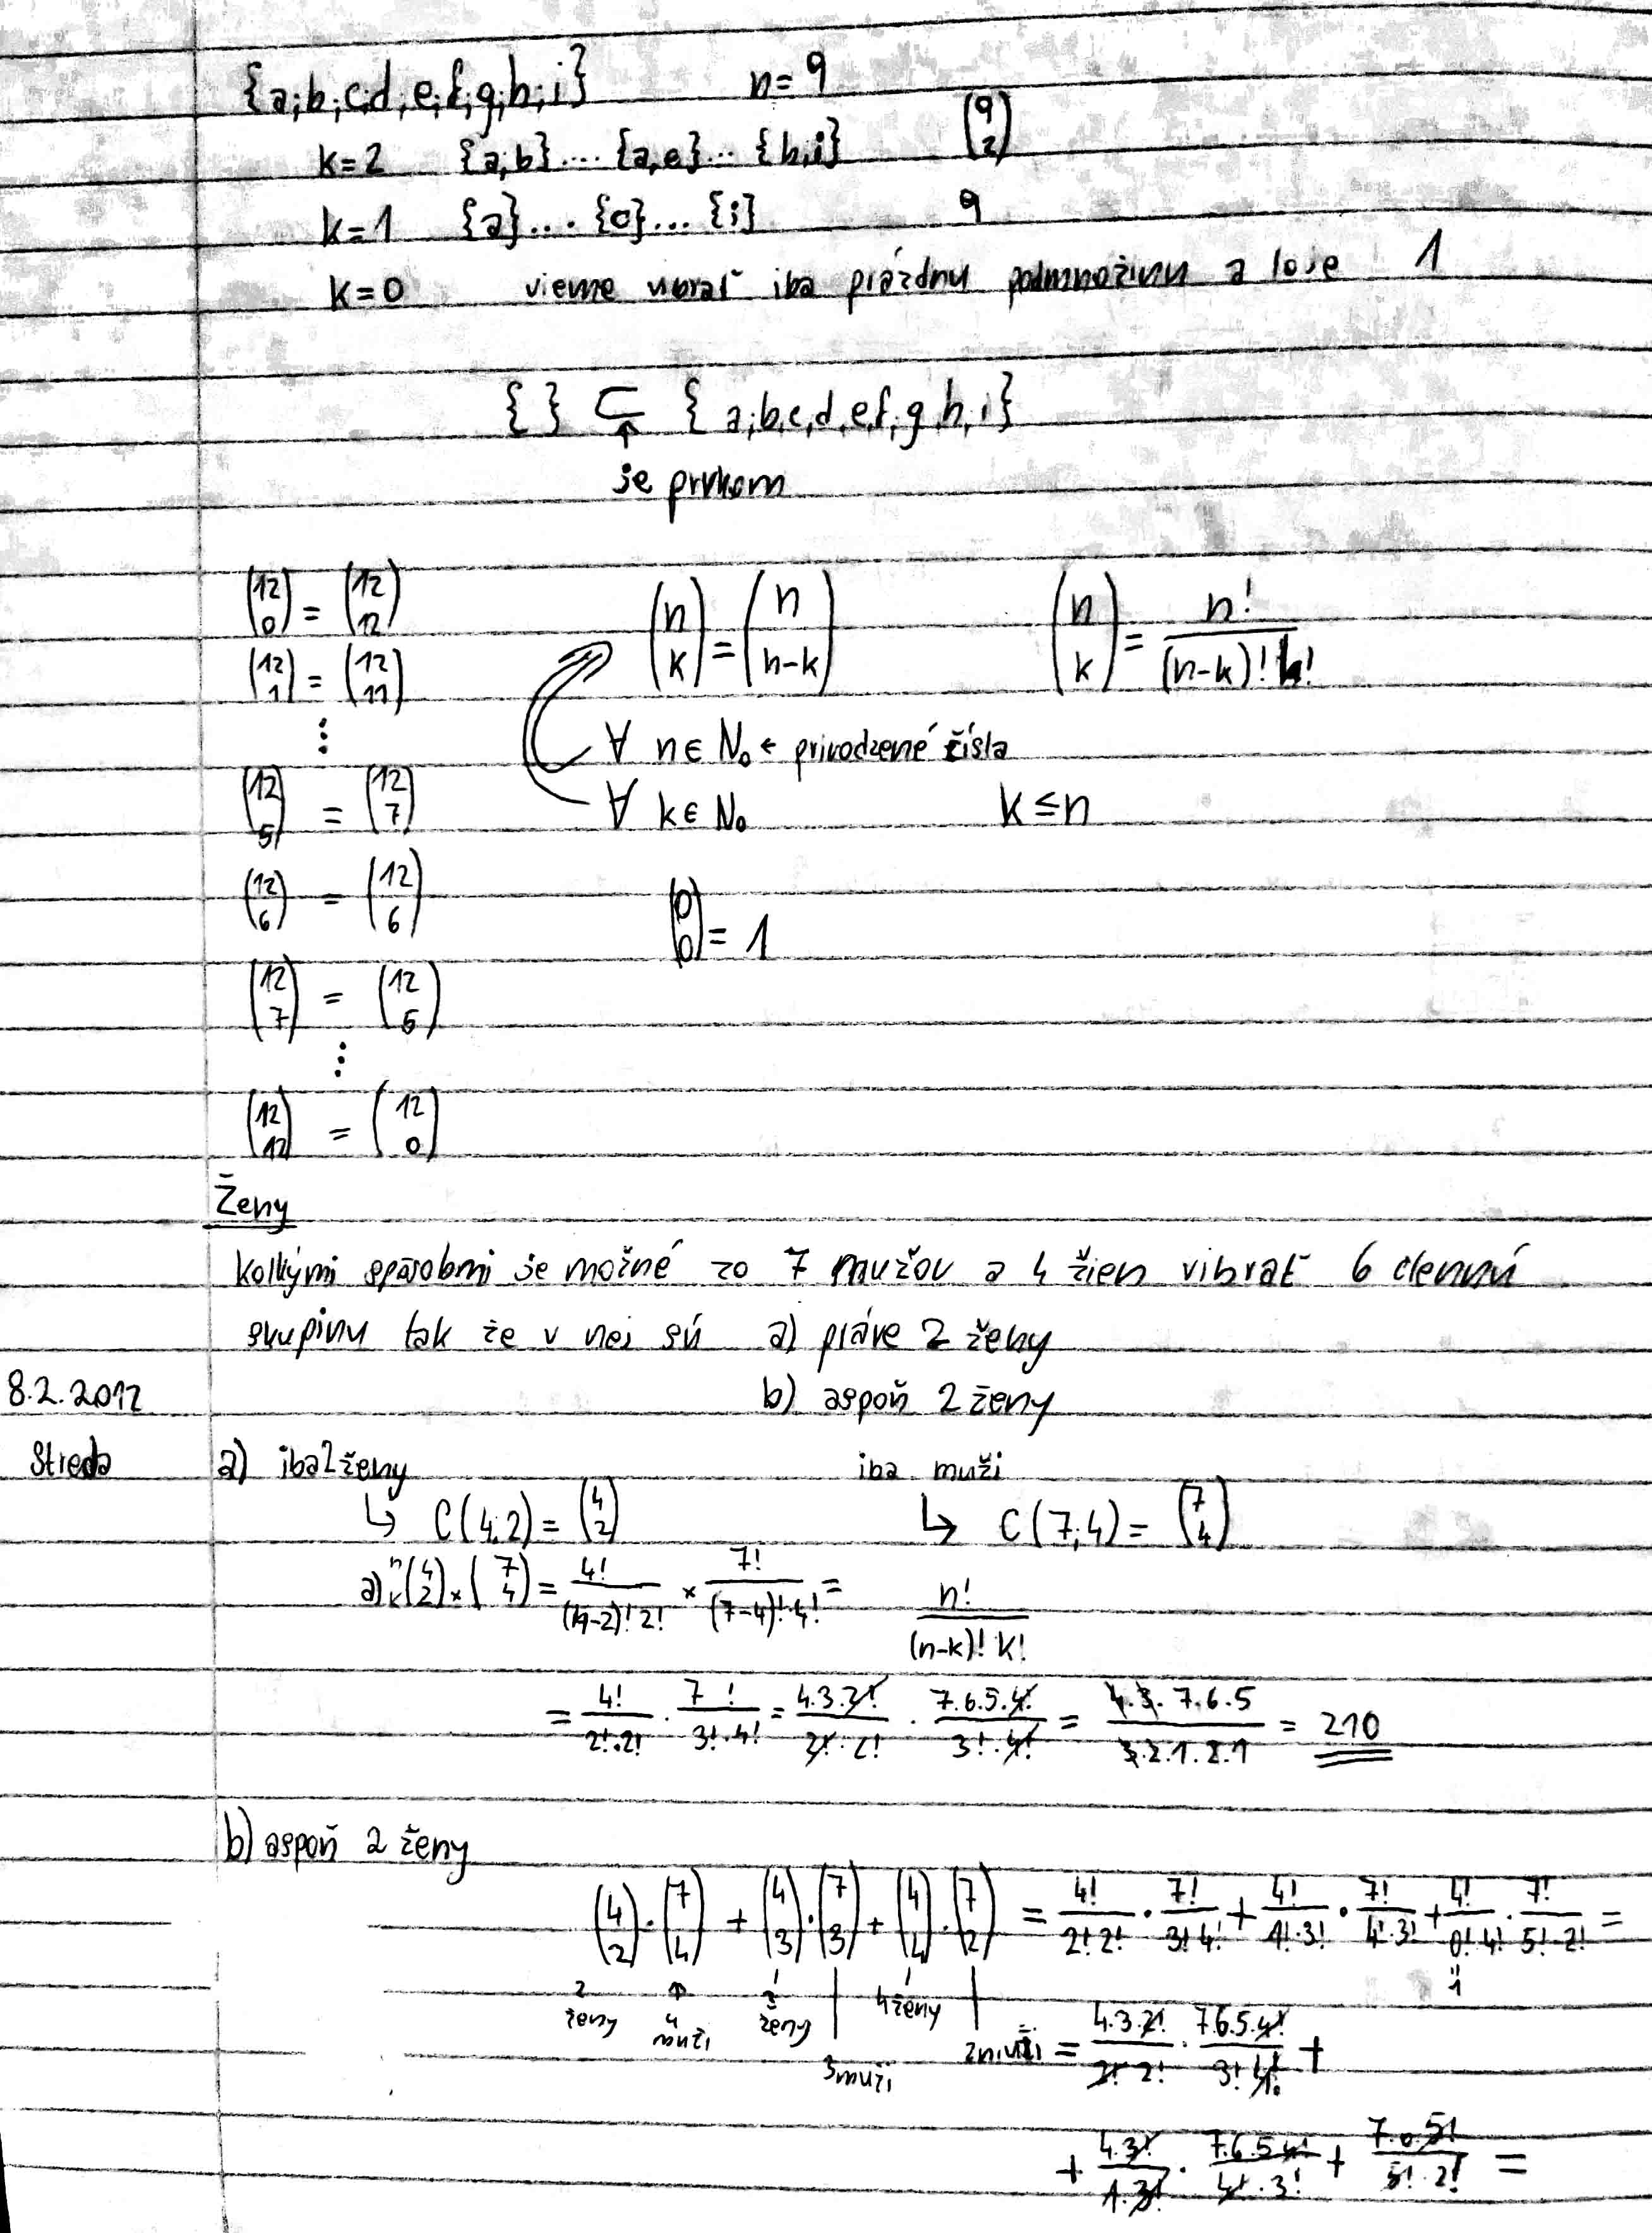 {a;b;c;d;e;f;g;h;i} n=9
k=2 {a;b}....{a,e}...{h,i} (9 2)
k=1 {a}....{c}...{i} 9
k=0 vieme vibrať iba prázdnu podmnožinu a to je 1
{ } ⊆ {a;b,c,d,e,f,g,h,i}
↑
je prvkom
(12 0) = (12 12) (n k) = (n n-k) (n k) = n!/(n-k)! k!
(12 1) = (12 11)
⋮ ∀ n∈N₀ ← prirodzené čísla
(12 5) = (12 7) ∀ k∈N₀ k≤n
(12 6) = (12 6) (0 0) = 1
(12 7) = (12 5)
⋮
(12 12) = (12 0)
Ženy
kolkými spôsobmi je možné zo 7 mužov a 4 žien vibrať 6 člennú
skupinu tak že v nej sú a) práve 2 ženy
8.2.2012 b) aspoň 2 ženy
Streda a) iba 2 ženy iba muži
↳ C(4,2) = (4 2) ↳ C(7;4) = (7 4)
a) n k (4 2) × (7 4) = 4!/(4-2)! 2! × 7!/(7-4)!·4! = n!/(n-k)! k!
= 4!/2!·2! · 7!/3!·4! = 4.3.2!/2!·2! · 7.6.5.4!/3!·4! = 4.3.7.6.5/3.2.1.2.1 = 210
b) aspoň 2 ženy
(4 2)·(7 4) + (4 3)·(7 3) + (4 4)·(7 2) = 4!/2! 2! · 7!/3! 4! + 4!/1!·3! · 7!/4!·3! + 4!/0!·4! · 7!/5!·2! =
2 ženy 4 muži 3 ženy 3 muži 4 ženy 2 muži 1
= 4.3.2!/2! 2! · 7.6.5.4!/3! 4! +
+ 4.3!/1.3! · 7.6.5.4!/4!·3! + 7.6.5!/5!·2! =